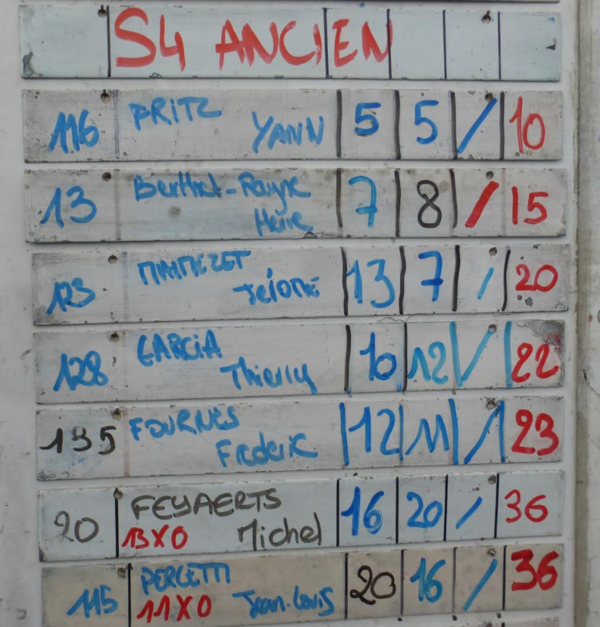 S4 ANCIEN
116 PRITZ YANN 5 5 / 10
13 Berthet-Rayne 7 8 / 15
123 Jérôme 13 7 / 20
128 GARCIA Thierry 10 12 / 22
135 FOURNES Frederic 12 11 / 23
20 FEYAERTS 13X0 Michel 16 20 / 36
115 PERLETTI 11X0 Jean-Louis 20 16 / 36